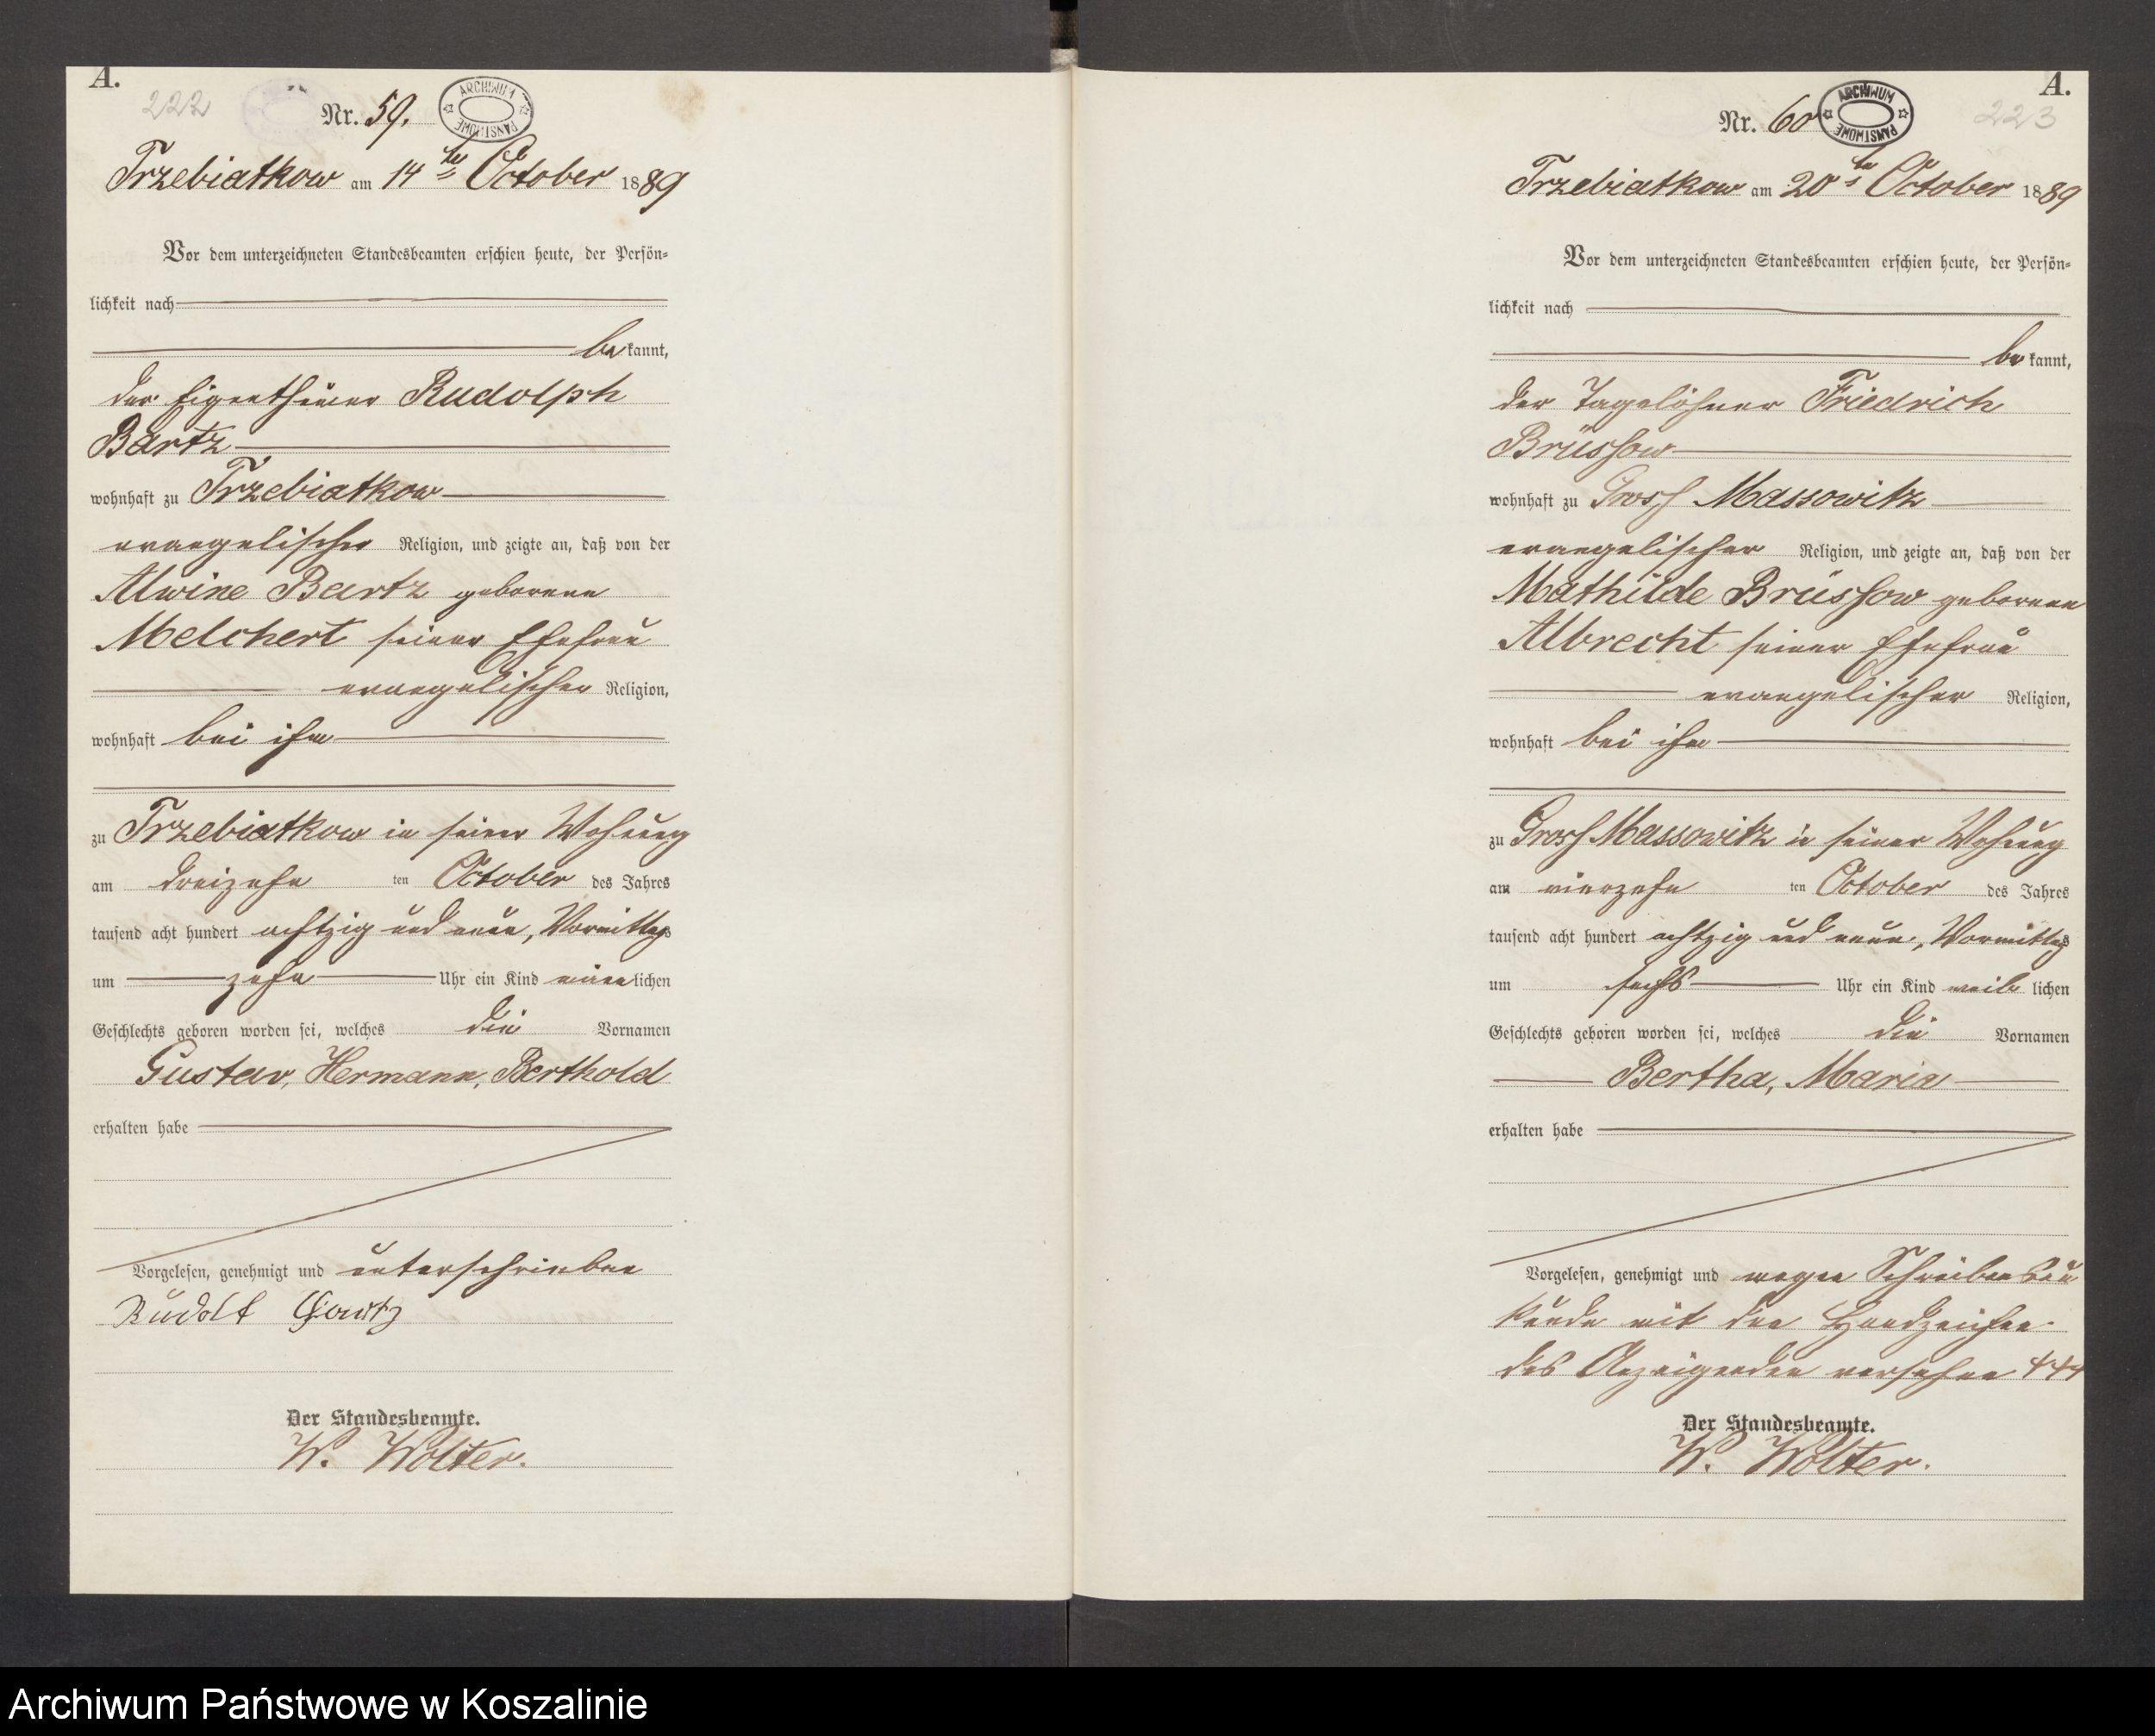 A.
222
Nr. 59.
ARCHIWUM PAŃSTWOWE
Trzebiatkow am 14ten October 1889
Vor dem unterzeichneten Standesbeamten erschien heute, der Persön-
lichkeit nach
bekannt,
der Eigenthümer Rudolph
Bartz
wohnhaft zu Trzebiatkow
evangelischer Religion, und zeigte an, daß von der
Alwine Bartz geborene
Melchert seiner Ehefrau
evangelischer Religion,
wohnhaft bei ihm
zu Trzebiatkow in seiner Wohnung
am dreizehn ten October des Jahres
tausend acht hundert achtzig und neun, Vormittags
um zehn Uhr ein Kind männlichen
Geschlechts geboren worden sei, welches die Vornamen
Gustav, Hermann, Berthold
erhalten habe
Vorgelesen, genehmigt und unterschrieben
Rudolf Bartz
Der Standesbeamte.
W. Wolter.
A.
223
Nr. 60
ARCHIWUM PAŃSTWOWE
Trzebiatkow am 20ten October 1889
Vor dem unterzeichneten Standesbeamten erschien heute, der Persön-
lichkeit nach
bekannt,
der Tagelöhner Friedrich
Brüssow
wohnhaft zu Gross Massowitz
evangelischer Religion, und zeigte an, daß von der
Mathilde Brüssow geborene
Albrecht seiner Ehefrau
evangelischer Religion,
wohnhaft bei ihm
zu Gross Massowitz in seiner Wohnung
am vierzehn ten October des Jahres
tausend acht hundert achtzig und neun, Vormittags
um sechs Uhr ein Kind weiblichen
Geschlechts geboren worden sei, welches die Vornamen
Bertha, Maria
erhalten habe
Vorgelesen, genehmigt und wegen Schreibensun
kunde mit den Handzeichen
des Anzeigenden versehen +++
Der Standesbeamte.
W. Wolter.
Archiwum Państwowe w Koszalinie